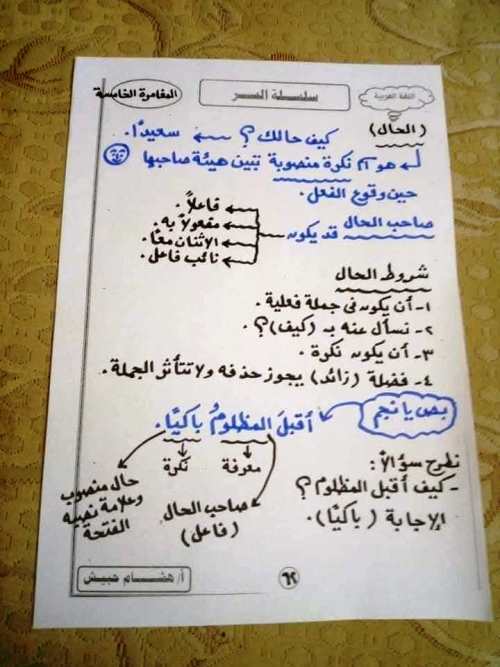 اللغة العربية
سلسلة السر
المغامرة الخامسة
(الحال)
كيف حالك؟ سعيدًا.
هو اسم نكرة منصوبة تبين هيئة صاحبها
حين وقوع الفعل.
صاحب الحال قد يكون
فاعلاً.
مفعولاً به.
الاثنان معًا.
نائب فاعل.
شروط الحال
١- أن يكون فى جملة فعلية.
٢- نسأل عنه بـ (كيف)؟.
٣- أن يكون نكرة.
٤- فضلة (زائد) يجوز حذفه ولا تتأثر الجملة.
بص يا نجم
أقبلَ المظلومُ باكيًا.
معرفة
نكرة
صاحب الحال
(فاعل)
حال منصوب
وعلامة نصبه
الفتحة
نطرح سؤالاً:
- كيف أقبل المظلوم؟
الإجابة (باكيًا).
أ/ هشام حبيش
٦٢